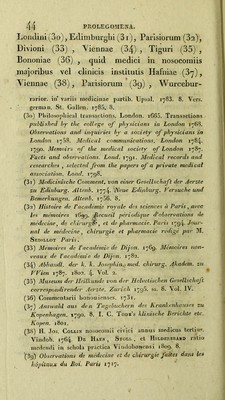 44 PROLEGOMENA.
Londini (30), Edimburghi (31), Parisiorum (32),
Divioni (33) , Viennae (34) , Tiguri (35) ,
Bononiae (36) , quid medici in nosocomiis
majoribus vel clinicis institutis Hafniae (37) ,
Viennae (38) , Parisiorum (39) , Wurcebur-
rarior. in variis medicinae partib. Upsal. 1783. 8. Vers.
german. St. Gallen. 1785, 8.
(30) Philosophical transactions, London. 1665. Transactions
published by the college of physicians in London 1768.
Observations and inquiries by a society of physicians in
London 1758. Medical communications, London 1784,
1790. Memoirs of the medical society of London 1787.
Facts and observations. Lond. 1791. Medical records and
researches , selected from the papers of a private medical
association. Lond. 1798.
(31) Medicinische Comment. von einer Gesellschaft der Aerzte
zu Edinburg. Altenb. 1774. Neue Edinburg. Versuche und
Bemerkungen. Altenb. 1756. 8.
(32) Histoire de l'academie royale des sciences à Paris, avec
les mémoires 1699. Recueil périodique d'observations de
médecine, de chirurgie, et de pharmacie. Paris 1794. Jour-
nal de médecine, chirurgie et pharmacie redigé par M.
SEDILLOT Paris.
(33) Mémoires de l'académie de Dijon. 1769. Mémoires nou-
veaux de l'académie de Dijon. 1782.
(34) Abhandl. der k. k. Josephin. med. chirurg. Akadem. zu
VVien 1787. 1801. 4. Vol. 2.
(35) Museum der Heilkunde von der Helvetischen Gesellschaft
correspondirender Aerzte. Zurich 1795. m. 8. Vol. IV.
(36) Commentarii bononienses. 1731.
(37) Auswahl aus den Tagebuchern des Krankenhauses zu
Kopenhagen, 1790. 8. I. C. TODE's klinische Berichte etc.
Kopen. 1801.
(38) H. JOS. COLLIN nosocomii civici annus medicus tertius.
Vindob. 1764. DE HAEN , STOLL , et HILDEBRAND ratio
medendi in schola practica Vindobonensi 1809, 8.
(39) Observations de médecine et de chirurgie faites dans les
hôpitaux du Roi. Paris 1717.